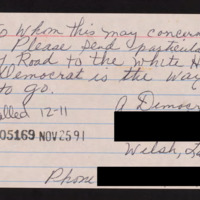 To Whom this may concern
Please send particula
Road to the White H
Democrat is the Way
to go.
alled 12-11
A Democr
05169 NOV 25 91
Welsh, La
Phone